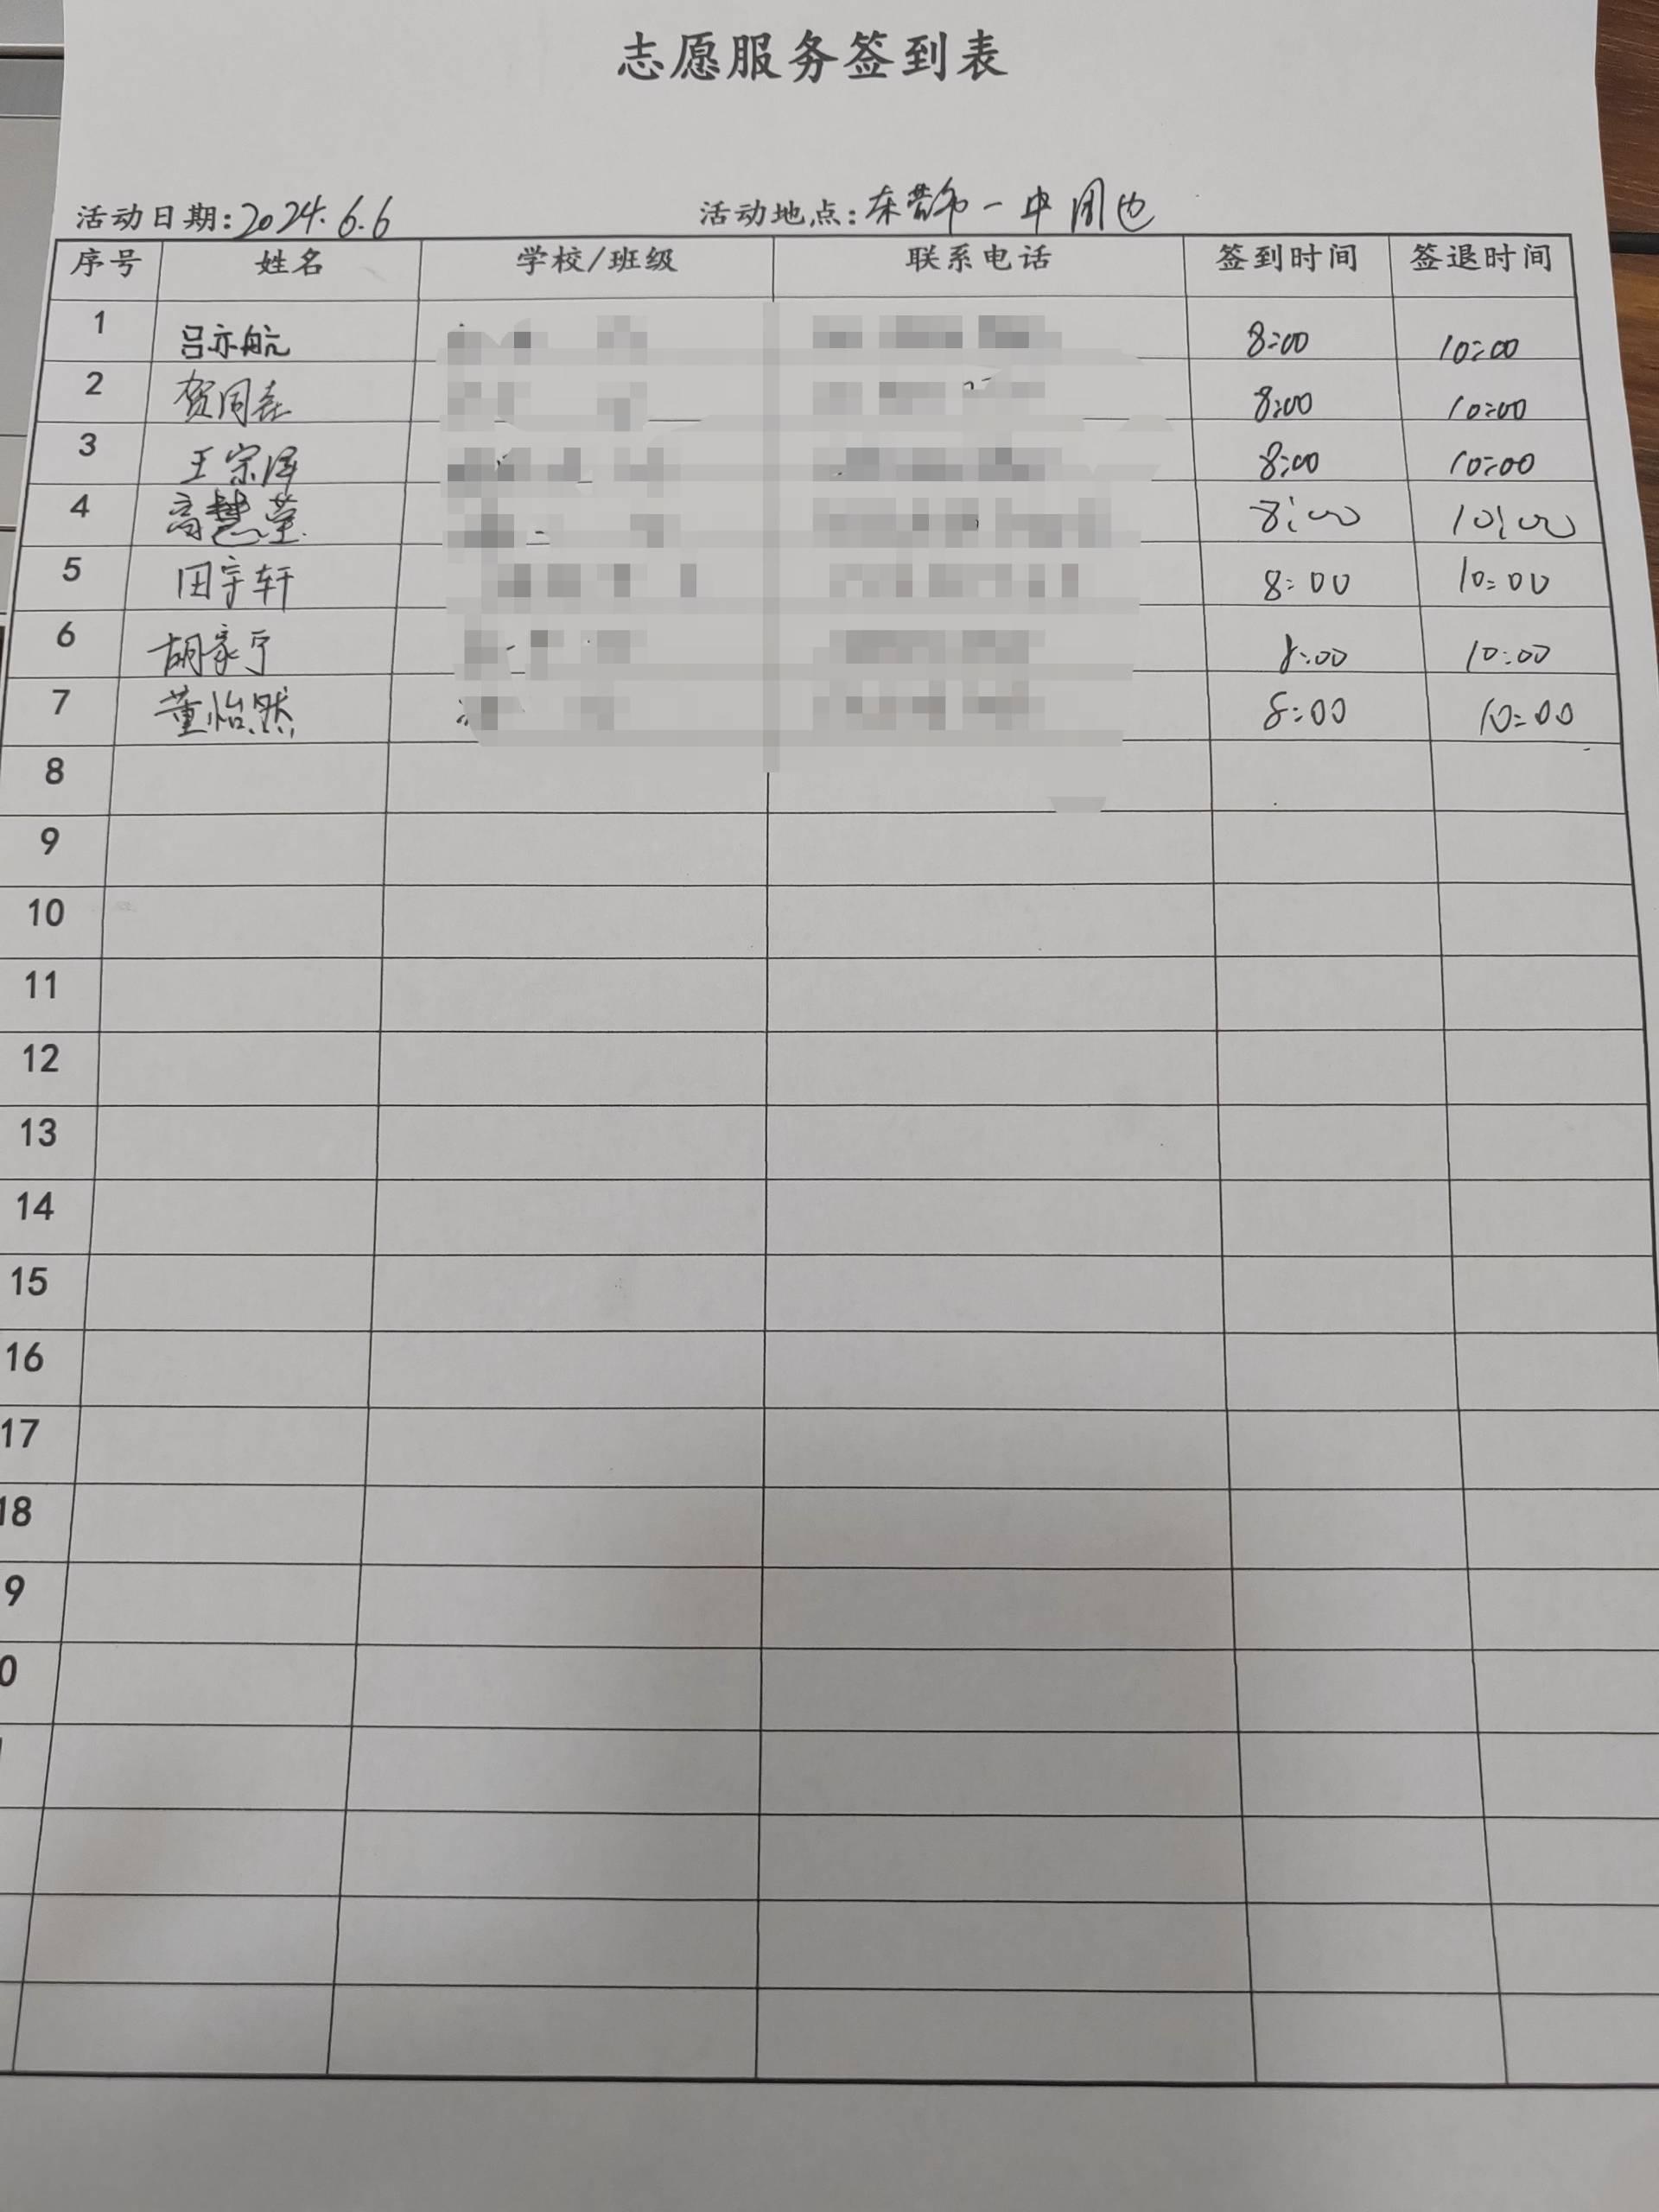 志愿服务签到表
活动日期:2024.6.6 活动地点:东营市一中周边
序号 姓名 学校/班级 联系电话 签到时间 签退时间
1 吕亦航 8:00 10:00
2 贺同 8:00 10:00
3 王宗泽 8:00 10:00
4 高慧莹 8:00 10:00
5 田宇轩 8:00 10:00
6 胡家宁 8:00 10:00
7 董怡然 8:00 10:00
8
9
10
11
12
13
14
15
16
17
18
9
0